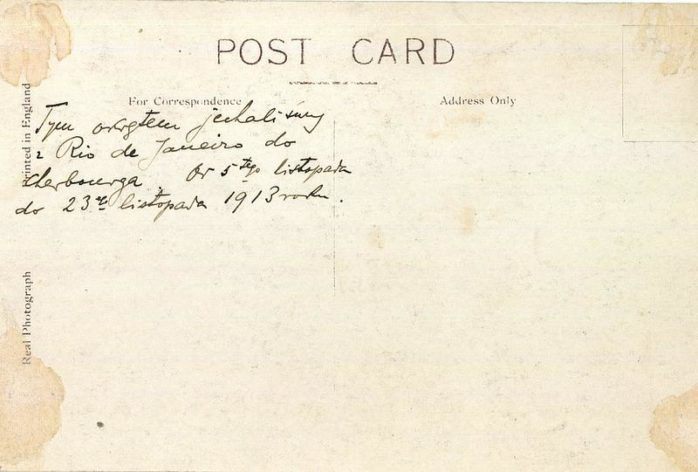 POST CARD
For Correspondence
Address Only
Tym okrętem jechaliśmy
z Rio de Janeiro do
Cherbourga. Od 5tego listopada
do 23go listopada 1913 roku.
Printed in England
Real Photograph